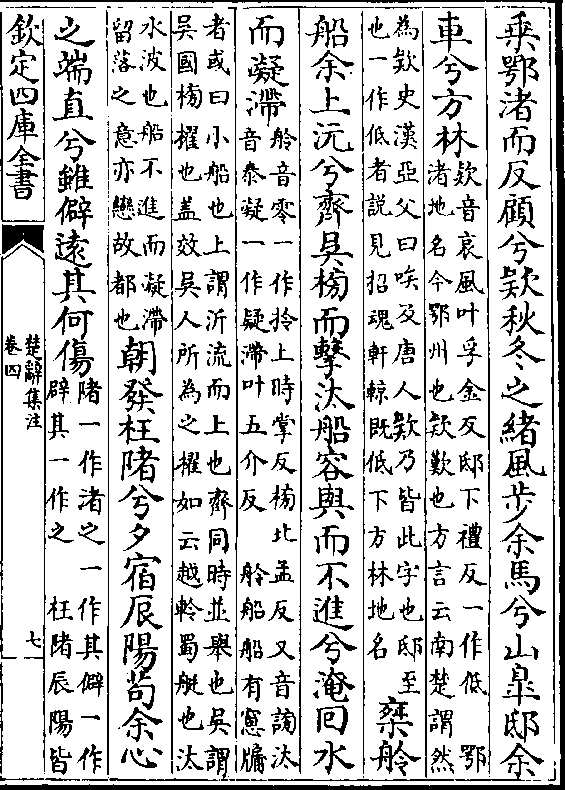 乗鄂渚而反顧兮欵秋冬之緒風步余馬兮山臯邸余
車兮方林
欵音哀風叶孚金反邸下禮反一作低　鄂
渚地名今鄂州也欵歎也方言云南楚謂然
為欵史漢亞父曰唉及唐人欵乃皆此字也邸至
也一作低者説見招魂軒輬既低下方林地名
椉舲
船余上沅兮齊吳榜而擊汰船容與而不進兮淹回水
而凝滯
舲音零一作拎上時掌反榜北孟反又音謗汰
音泰凝一作疑滯叶五介反　舲船船有窻牖
者或曰小船也上謂沂流而上也齊同時並舉也吳謂
吳國榜櫂也盖效吳人所為之櫂如云越舲蜀艇也汰
水波也船不進而凝滯
留落之意亦戀故都也
朝發枉陼兮夕宿辰陽苟余心
之端直兮雖僻遠其何傷
陼一作渚之一作其僻一作
辟其一作之　枉陼辰陽皆
欽定四庫全書
楚辭集注
卷四
七